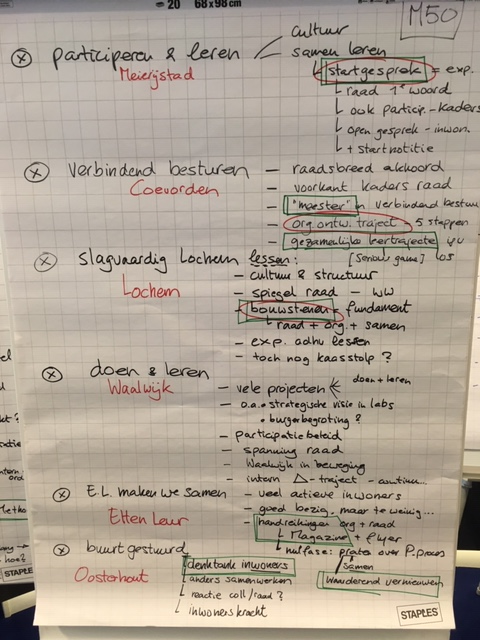 20 68x98cm
M50
cultuur
participeren & leren
samen leren
Meierijstad
startgesprek = exp.
raad 1e woord
ook particip.-kaders
open gesprek - inwon.
+ startnotitie
verbindend besturen - raadsbreed akkoord
Coevorden
- voorkant kaders raad
- "meester" in verbindend bestuu
- org. ontw. traject 5 stappen
- gezamenlijke leertrajecte
[Serious game]
slagvaardig Lochem lessen:
- cultuur & structuur
Lochem
- spiegel raad - WW
- bouwstenen = fundament
raad + org. + samen
- exp. adhv lessen
- toch nog kaasstolp ?
doen & leren
Waalwijk
- vele projecten
doen + leren
- o.a. strategische visie in labs
• burgerbegroting ?
- participatiebeleid
- spanning raad
- Waalwijk in beweging
- intern Δ-traject - continu...
E.L. maken we samen - veel actieve inwoners
Etten Leur
- goed bezig, maar te weinig...
- handreikingen org + raad
Magazine + flyer
nulfase: praten over P.proces
buurt gestuurd
Oosterhout
denktank inwoners
samen
anders samenwerken
Wanderend vernieuwen
reactie coll/raad ?
inwonerskracht
STAPLES
STAPLES